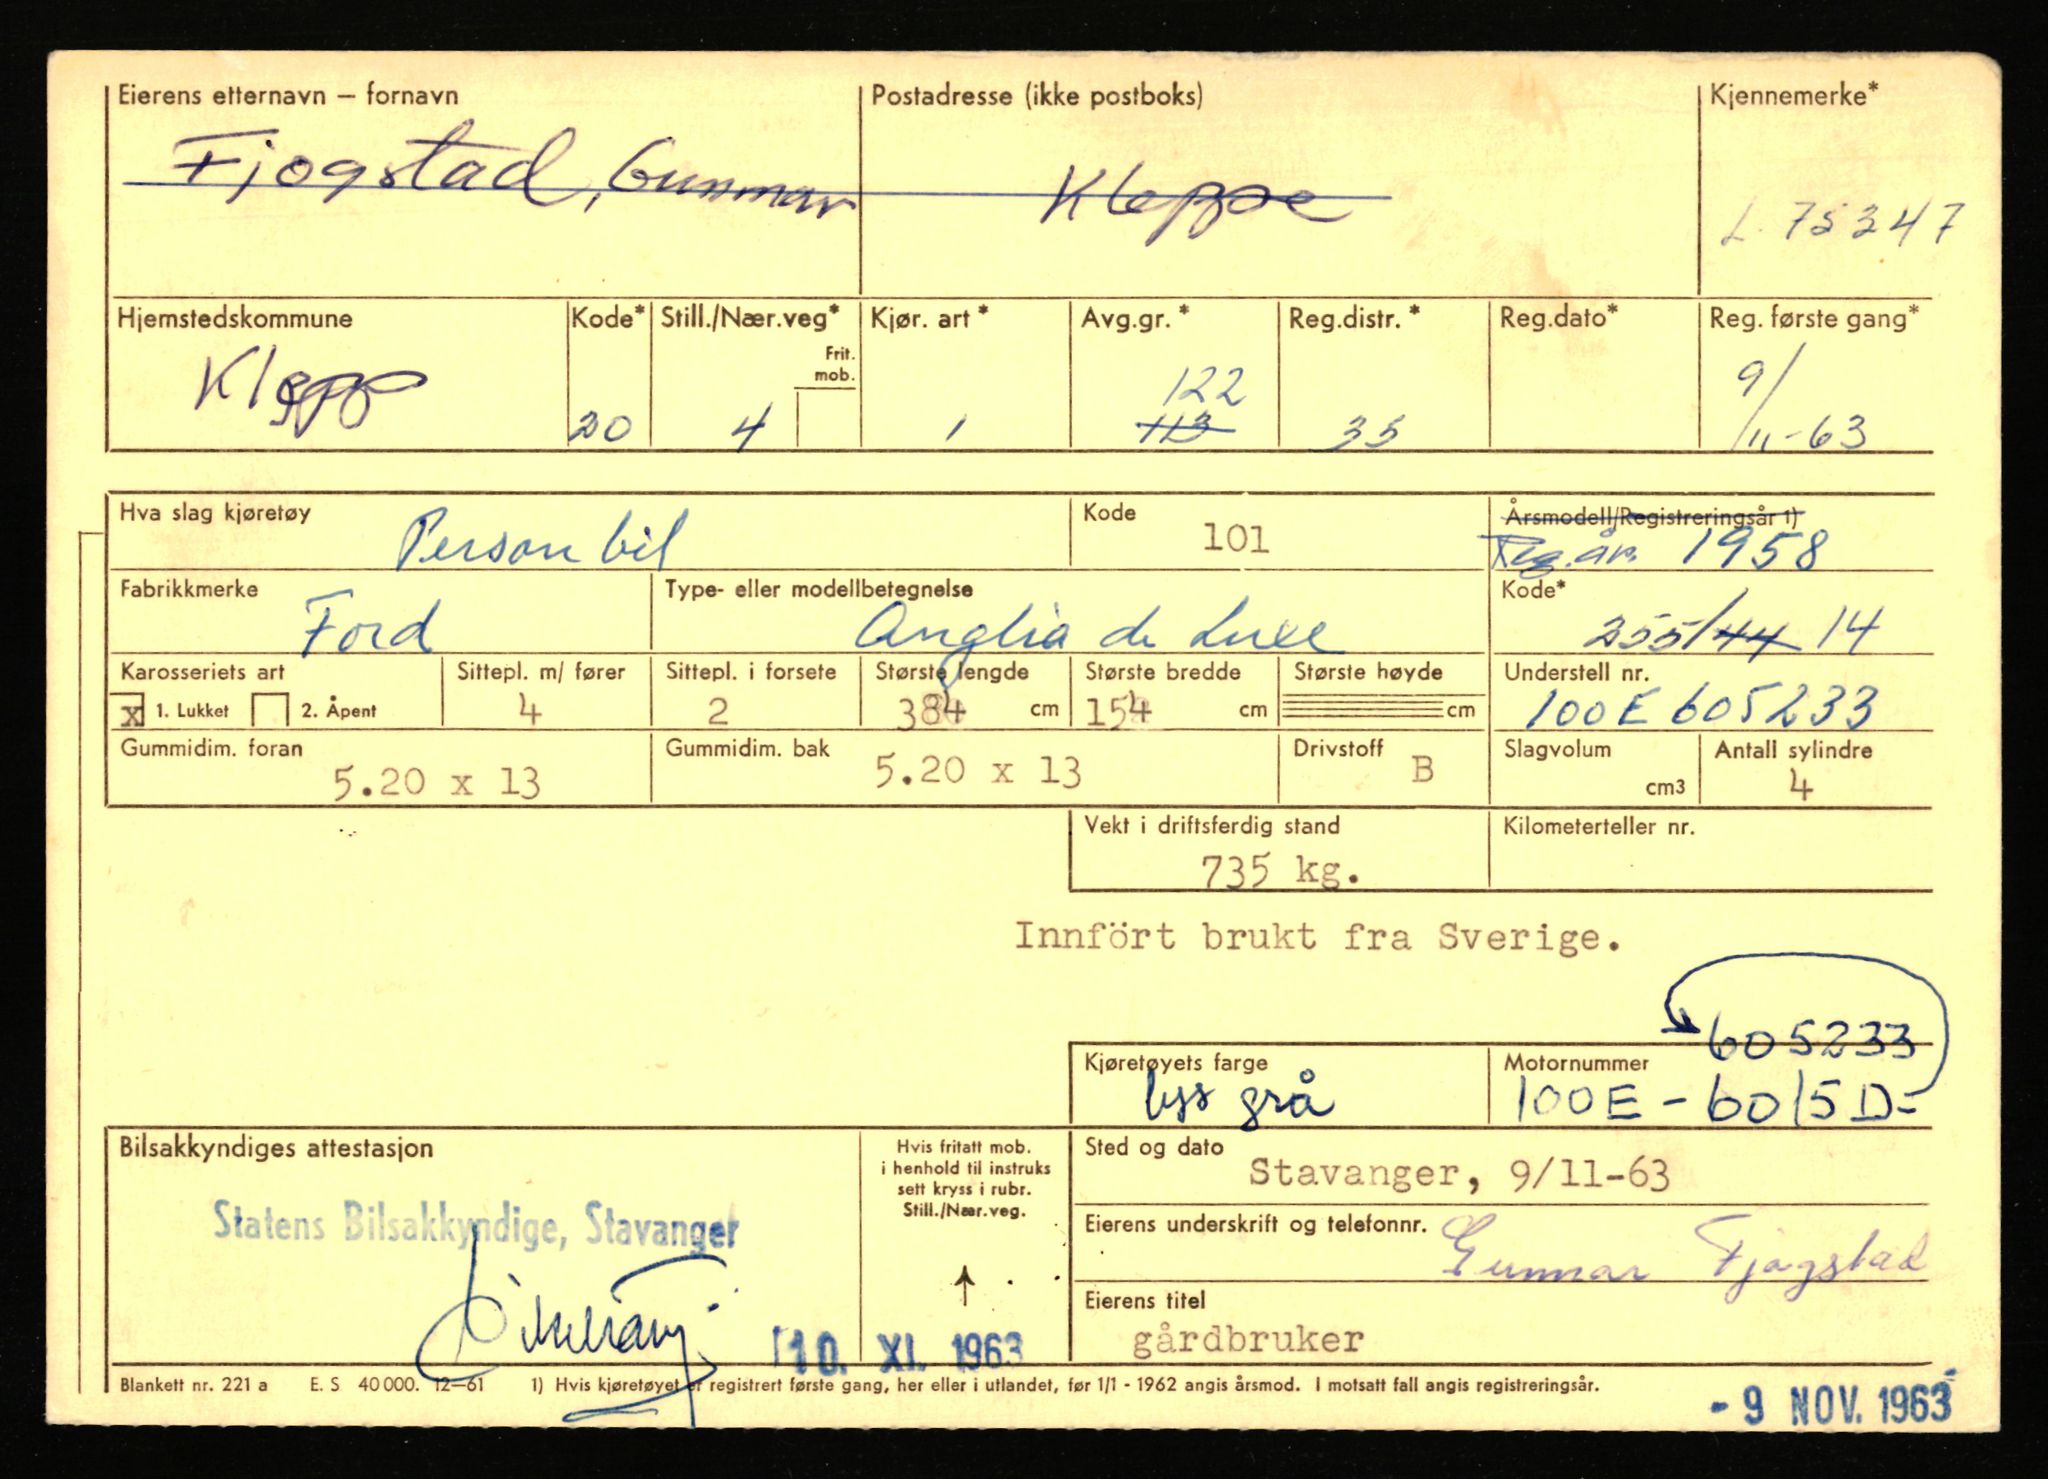 Eierens etternavn – fornavn Postadresse (ikke postboks) Kjennemerke*
Fjogstad, Gunnar Kleppe L 75347
Hjemstedskommune Kode* Still./Nær.veg* Kjør. art * Avg.gr. * Reg.distr. * Reg.dato* Reg. første gang*
Frit.
mob.
Klepp 20 4 1 122 113 35 9/11-63
Hva slag kjøretøy Kode Årsmodell/Registreringsår 1)
Personbil 101 Reg.år. 1958
Fabrikkmerke Type- eller modellbetegnelse Kode*
Ford Anglia de Luxe 255/44 14
Karosseriets art Sittepl. m/ fører Sittepl. i forsete Største lengde Største bredde Største høyde Understell nr.
x 1. Lukket 2. Åpent 4 2 384 cm 154 cm cm 100E605233
Gummidim. foran Gummidim. bak Drivstoff Slagvolum Antall sylindre
5.20 x 13 5.20 x 13 B cm3 4
Vekt i driftsferdig stand Kilometerteller nr.
735 kg.
Innfört brukt fra Sverige.
605233
Kjøretøyets farge Motornummer
lys grå 100E-6015D-
Bilsakkyndiges attestasjon Hvis fritatt mob. i henhold til instruks sett kryss i rubr. Still./Nær.veg. Sted og dato
Stavanger, 9/11-63
Statens Bilsakkyndige, Stavanger Eierens underskrift og telefonnr.
Gunnar Fjogstad
Eierens titel
gårdbruker
10. XI. 1963
Blankett nr. 221 a E. S 40 000. 12–61 1) Hvis kjøretøyet er registrert første gang, her eller i utlandet, før 1/1 - 1962 angis årsmod. I motsatt fall angis registreringsår.
- 9 NOV. 1963